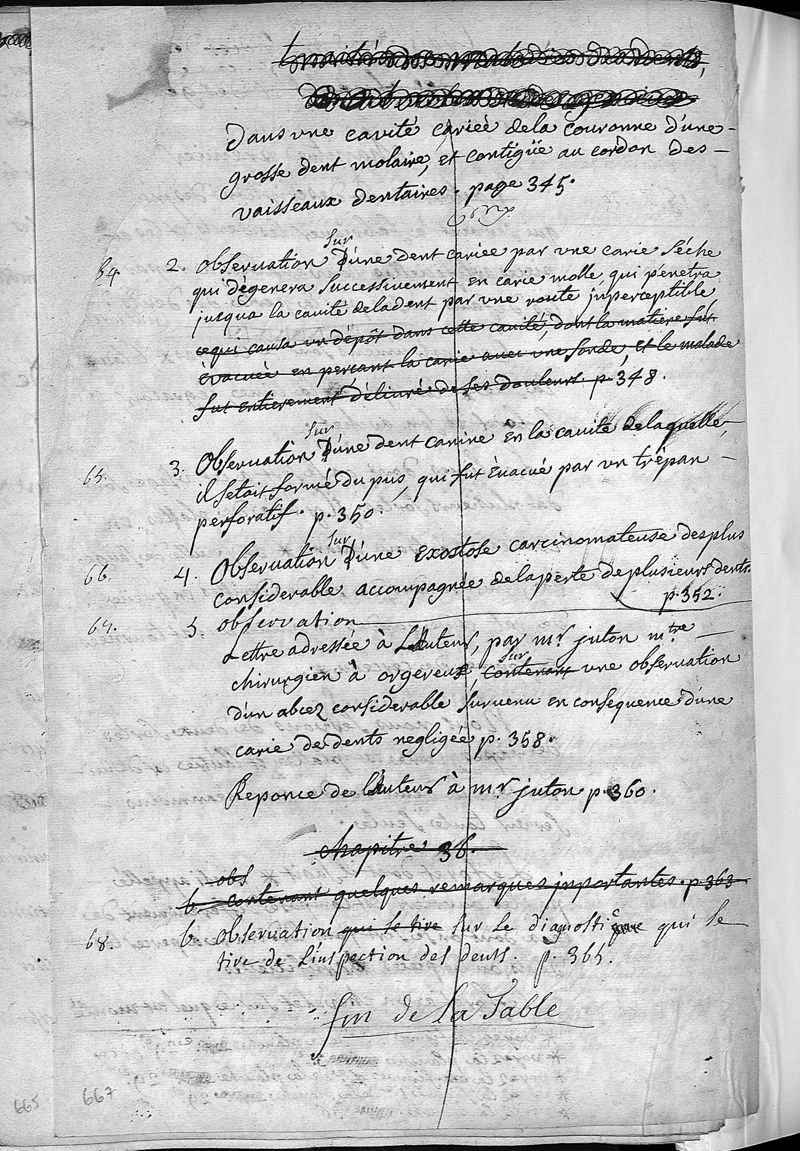 Dans vne cavité cariée dela couronne d'une-
grosse dent molaire, et contigüe au cordon des-
vaisseaux dentaires. page 345.
sur
64 2. observation D'une dent cariée par vne carie séche
qui dégenera successivement en carie molle qui penetra
jusqua la cavité deladent par vne route jnperceptible
cequi causa vn dépôt dans cette cavité, dont la matiere fut
évacuée en perçant la carie avec vne sonde, et le malade
fut entierement délivré de ses douleurs. p. 348.
sur
65. 3. Observation D'une dent canine en la cavité delaquelle
il setoit formé du pus, qui fut évacué par vn trépan-
perforatif. p. 350
sur
66. 4. Observation D'une exostose carcinomateuse desplus
considerable accompagnée delaperte deplusieurs dents.
p. 352.
67. 5 observation
Lettre adressée à L'Auteur, par mr juton mtre-
sur
chirurgien à orgereux, contenant une observation
d'un abcez considerable survenu en consequence d'une
carie de dents negligée p. 358.
Reponce de L'Auteur à mr juton p. 360.
chapitre 36.
obs
6 contenant quelques remarques jmportantes. p. 363
68. 6 observation qui se tire sur le diagnostique qui se
tire de L'inspection des dents. p. 365.
fin de la Table
665 667